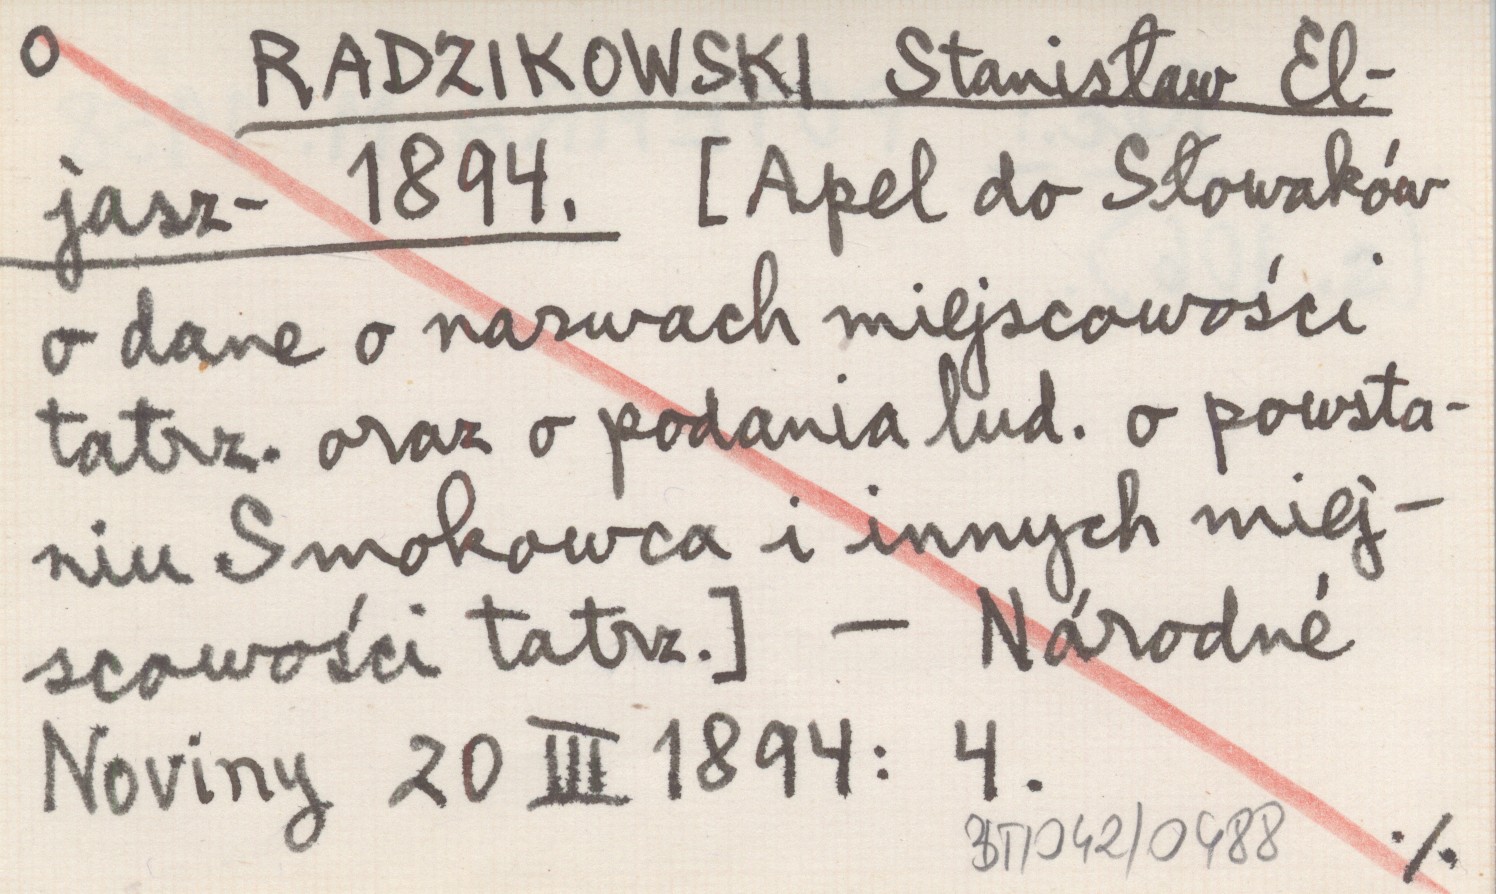 o RADZIKOWSKI Stanisław El-
jasz- 1894. [Apel do Słowaków
o dane o nazwach miejscowości
tatrz. oraz o podania lud. o powsta-
niu Smokowca i innych miej-
scowości tatrz.] — Národné
Noviny 20 III 1894: 4.
BT/042/0488
./.